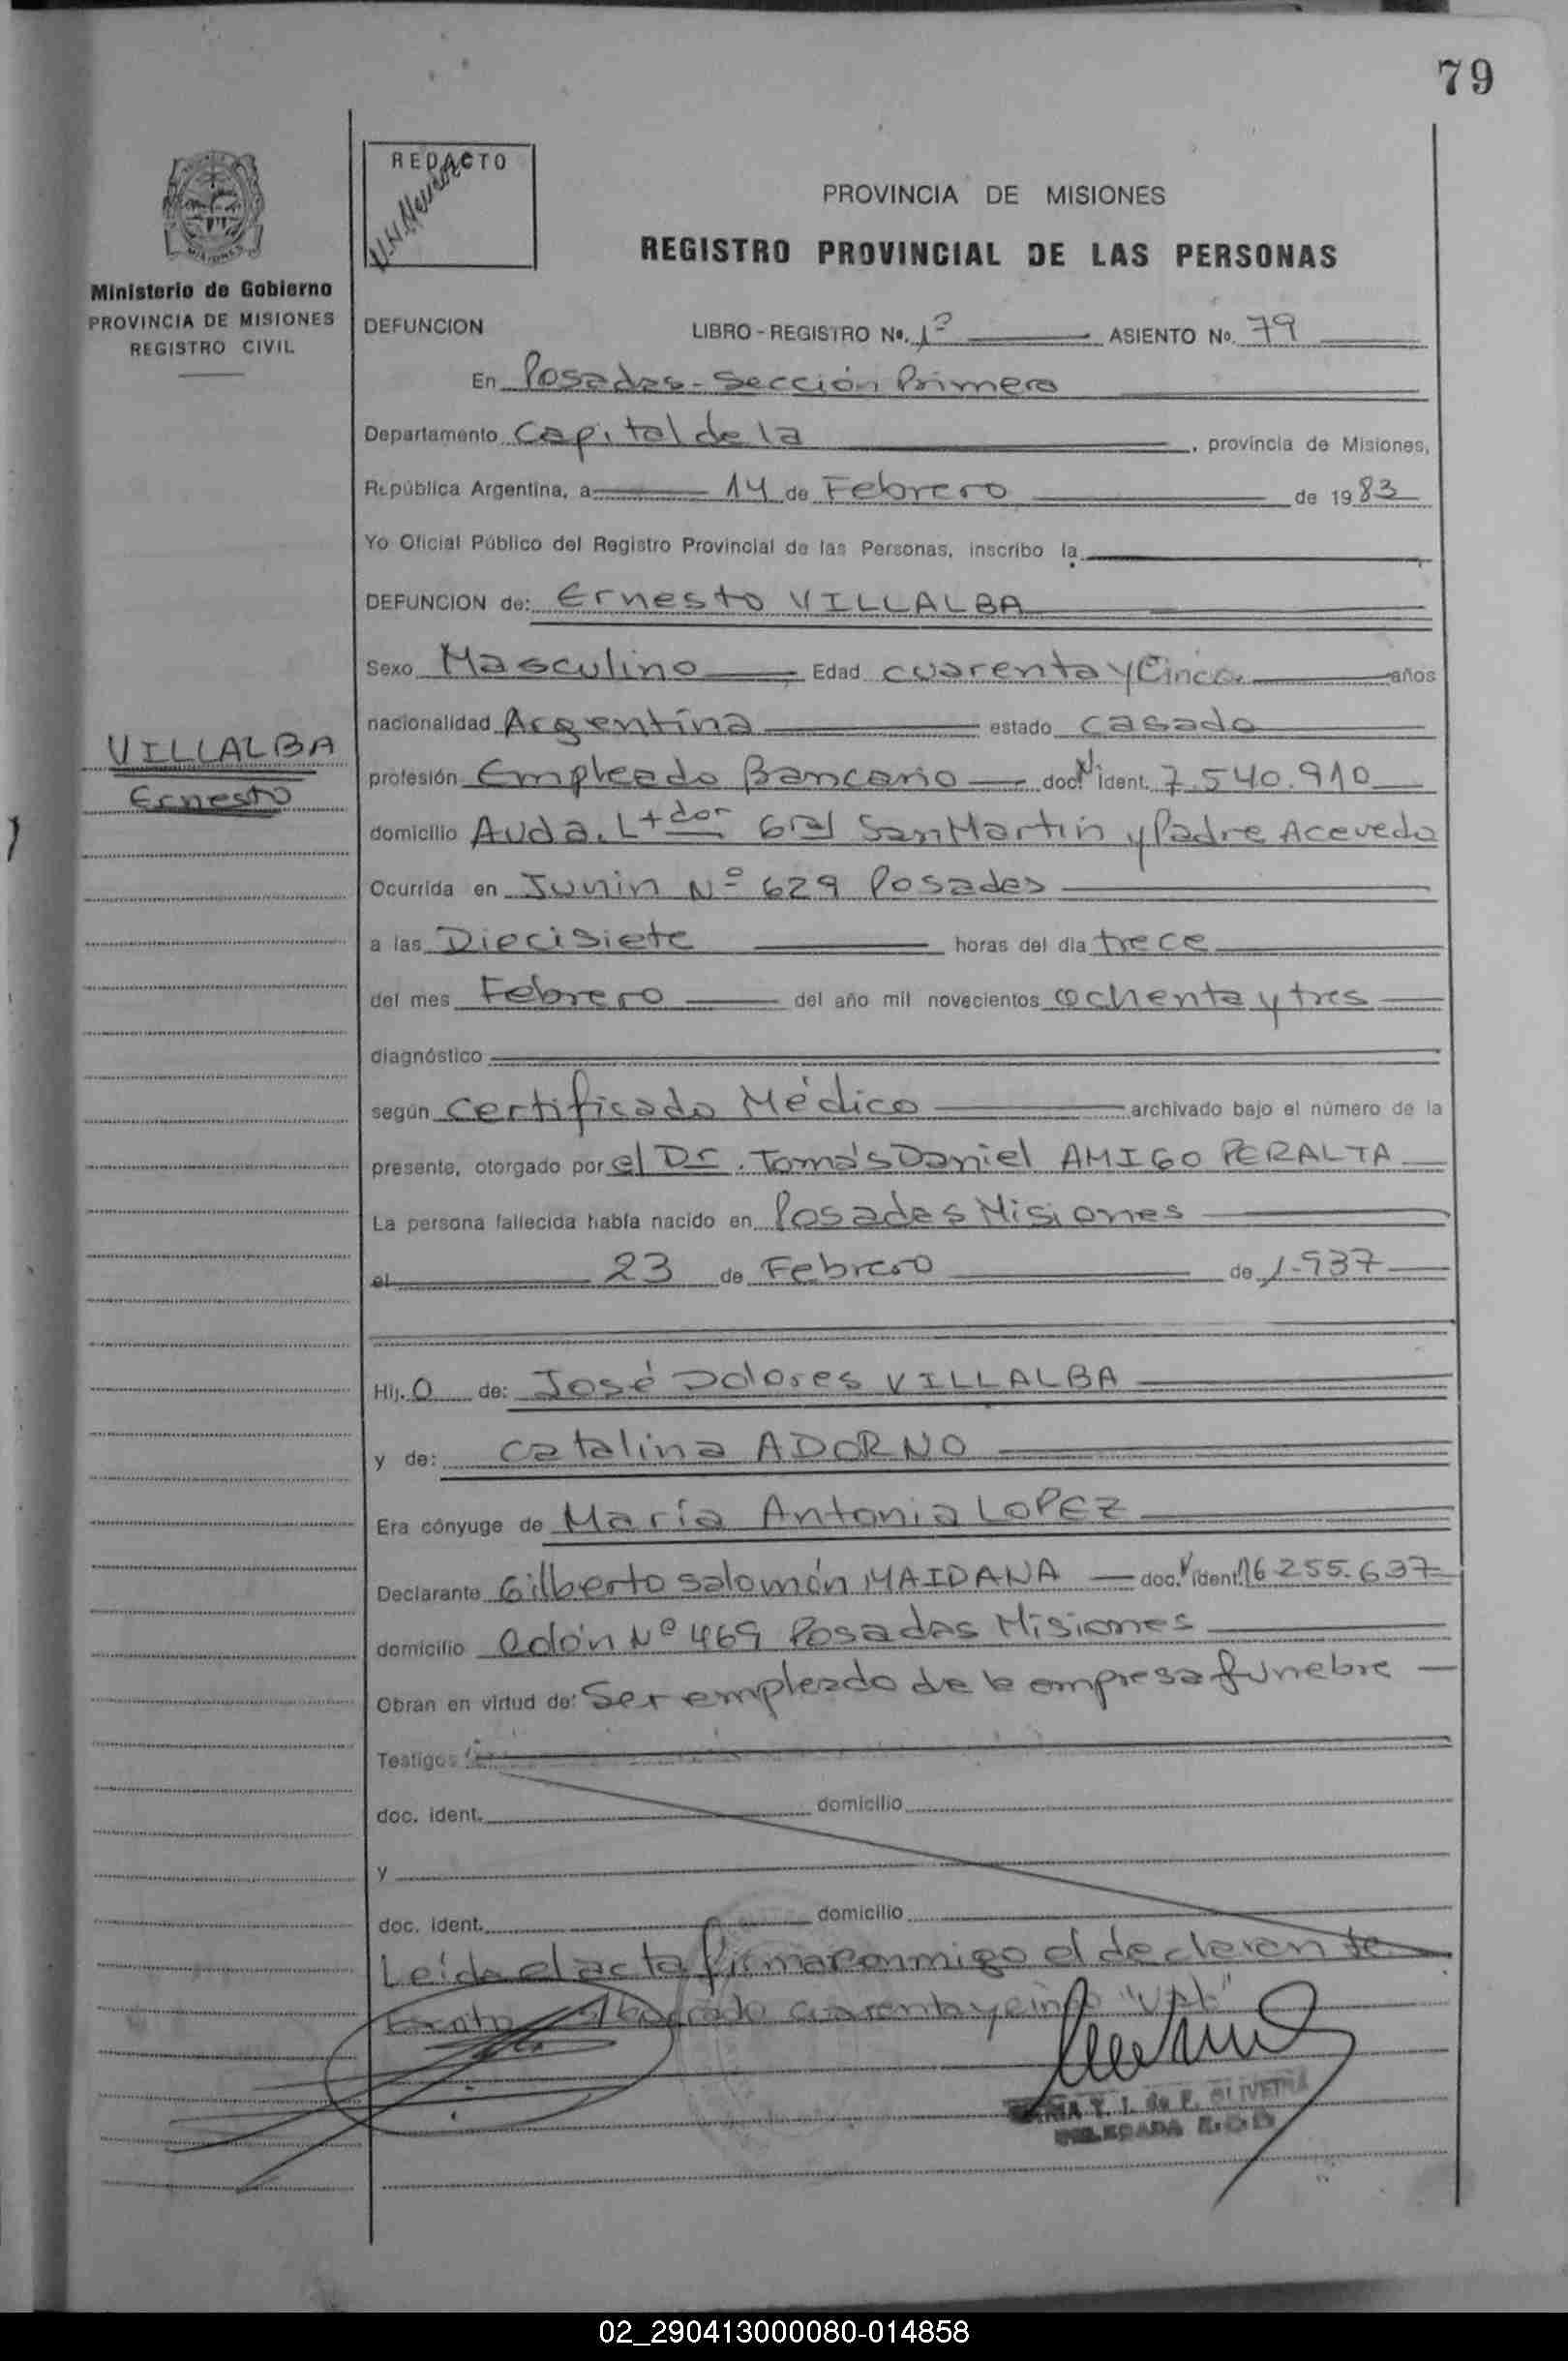 79
REDACTO
PROVINCIA DE MISIONES
REGISTRO PROVINCIAL DE LAS PERSONAS
MISIONES
Ministerio de Gobierno
PROVINCIA DE MISIONES
REGISTRO CIVIL
DEFUNCION LIBRO - REGISTRO Nº. 1º ASIENTO No. 79
En Posadas - Sección Primera
Departamento Capital de la , provincia de Misiones,
República Argentina, a 14 de Febrero de 1983
Yo Oficial Público del Registro Provincial de las Personas, inscribo la
DEFUNCION de: Ernesto VILLALBA
Sexo Masculino Edad cuarenta y Cinco. años
nacionalidad Argentina estado casado
VILLALBA
Ernesto
profesión Empleado Bancario doc. N ident. 7.540.910
domicilio Avda. Ltdor Gral San Martín y Padre Acevedo
Ocurrida en Junin Nº 629 Posadas
a las Diecisiete horas del día trece
del mes Febrero del año mil novecientos ochenta y tres
diagnóstico
según Certificado Médico archivado bajo el número de la
presente, otorgado por el Dr. Tomás Daniel AMIGO PERALTA
La persona fallecida había nacido en Posadas Misiones
el 23 de Febrero de 1.937
Hij. o de: José Dolores VILLALBA
y de: Catalina ADORNO
Era cónyuge de María Antonia LOPEZ
Declarante Gilberto Salomón MAIDANA doc. ident. 16255.637
domicilio Colón Nº 469 Posadas Misiones
Obran en virtud de: Ser empleado de la empresa fúnebre
Testigos
doc. ident. domicilio
y
doc. ident. domicilio
Leída el acta firma conmigo el declarante
borrado cuarenta y cinco "Vale"
T. I. de P. OLIVEIRA
DELEGADA
02_290413000080-014858